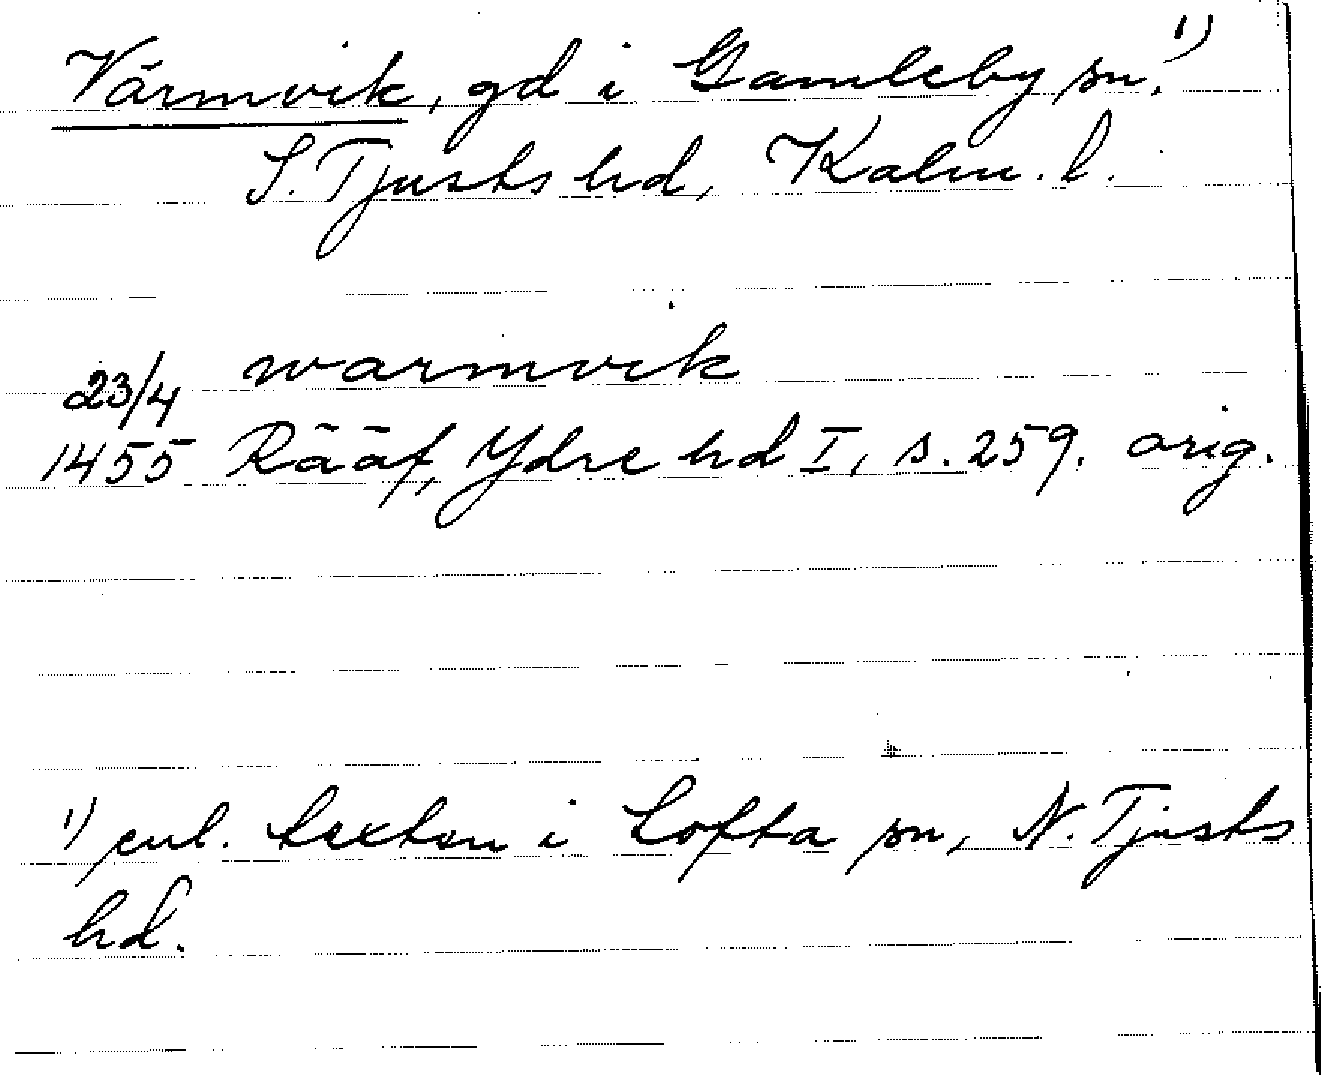 Värmvik, gd i Gamleby sn,¹⁾
S. Tjusts hd, Kalm. l.
warmvik
23/4
1455 Rääf, Ydre hd I, s. 259. orig.
¹⁾ enl. texten i Lofta sn, N. Tjusts
hd.